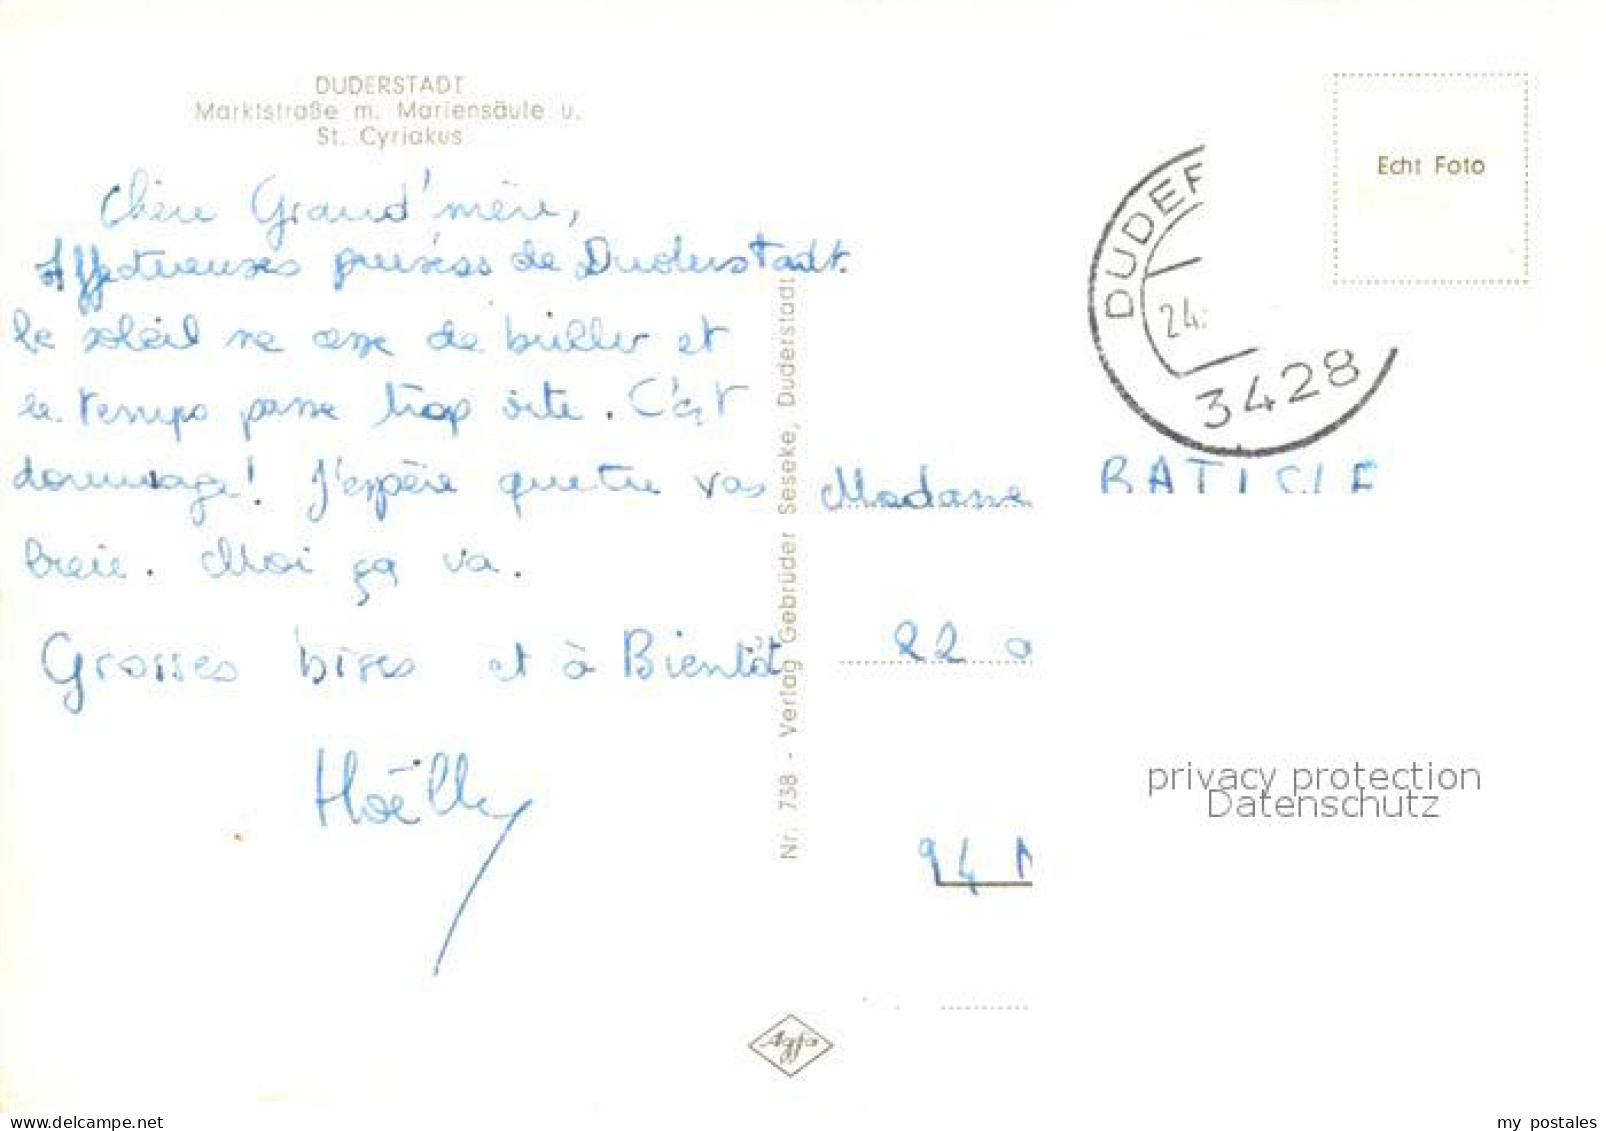 DUDERSTADT
Marktstraße m. Mariensäule u.
St. Cyriakus
Chère Grand'mère,
Affectueuses pensées de Duderstadt.
Le soleil ne cesse de briller et
le temps passe trop vite. C'est
dommage! J'espère que tu vas
bien. Moi ça va.
Grosses bises et à Bientôt
Nr. 738 - Verlag Gebrüder Seseke, Duderstadt
Echt Foto
DUDER
24.
3428
Madame
22
94
privacy protection
Datenschutz
Agfa
delcampe.net
my_postales